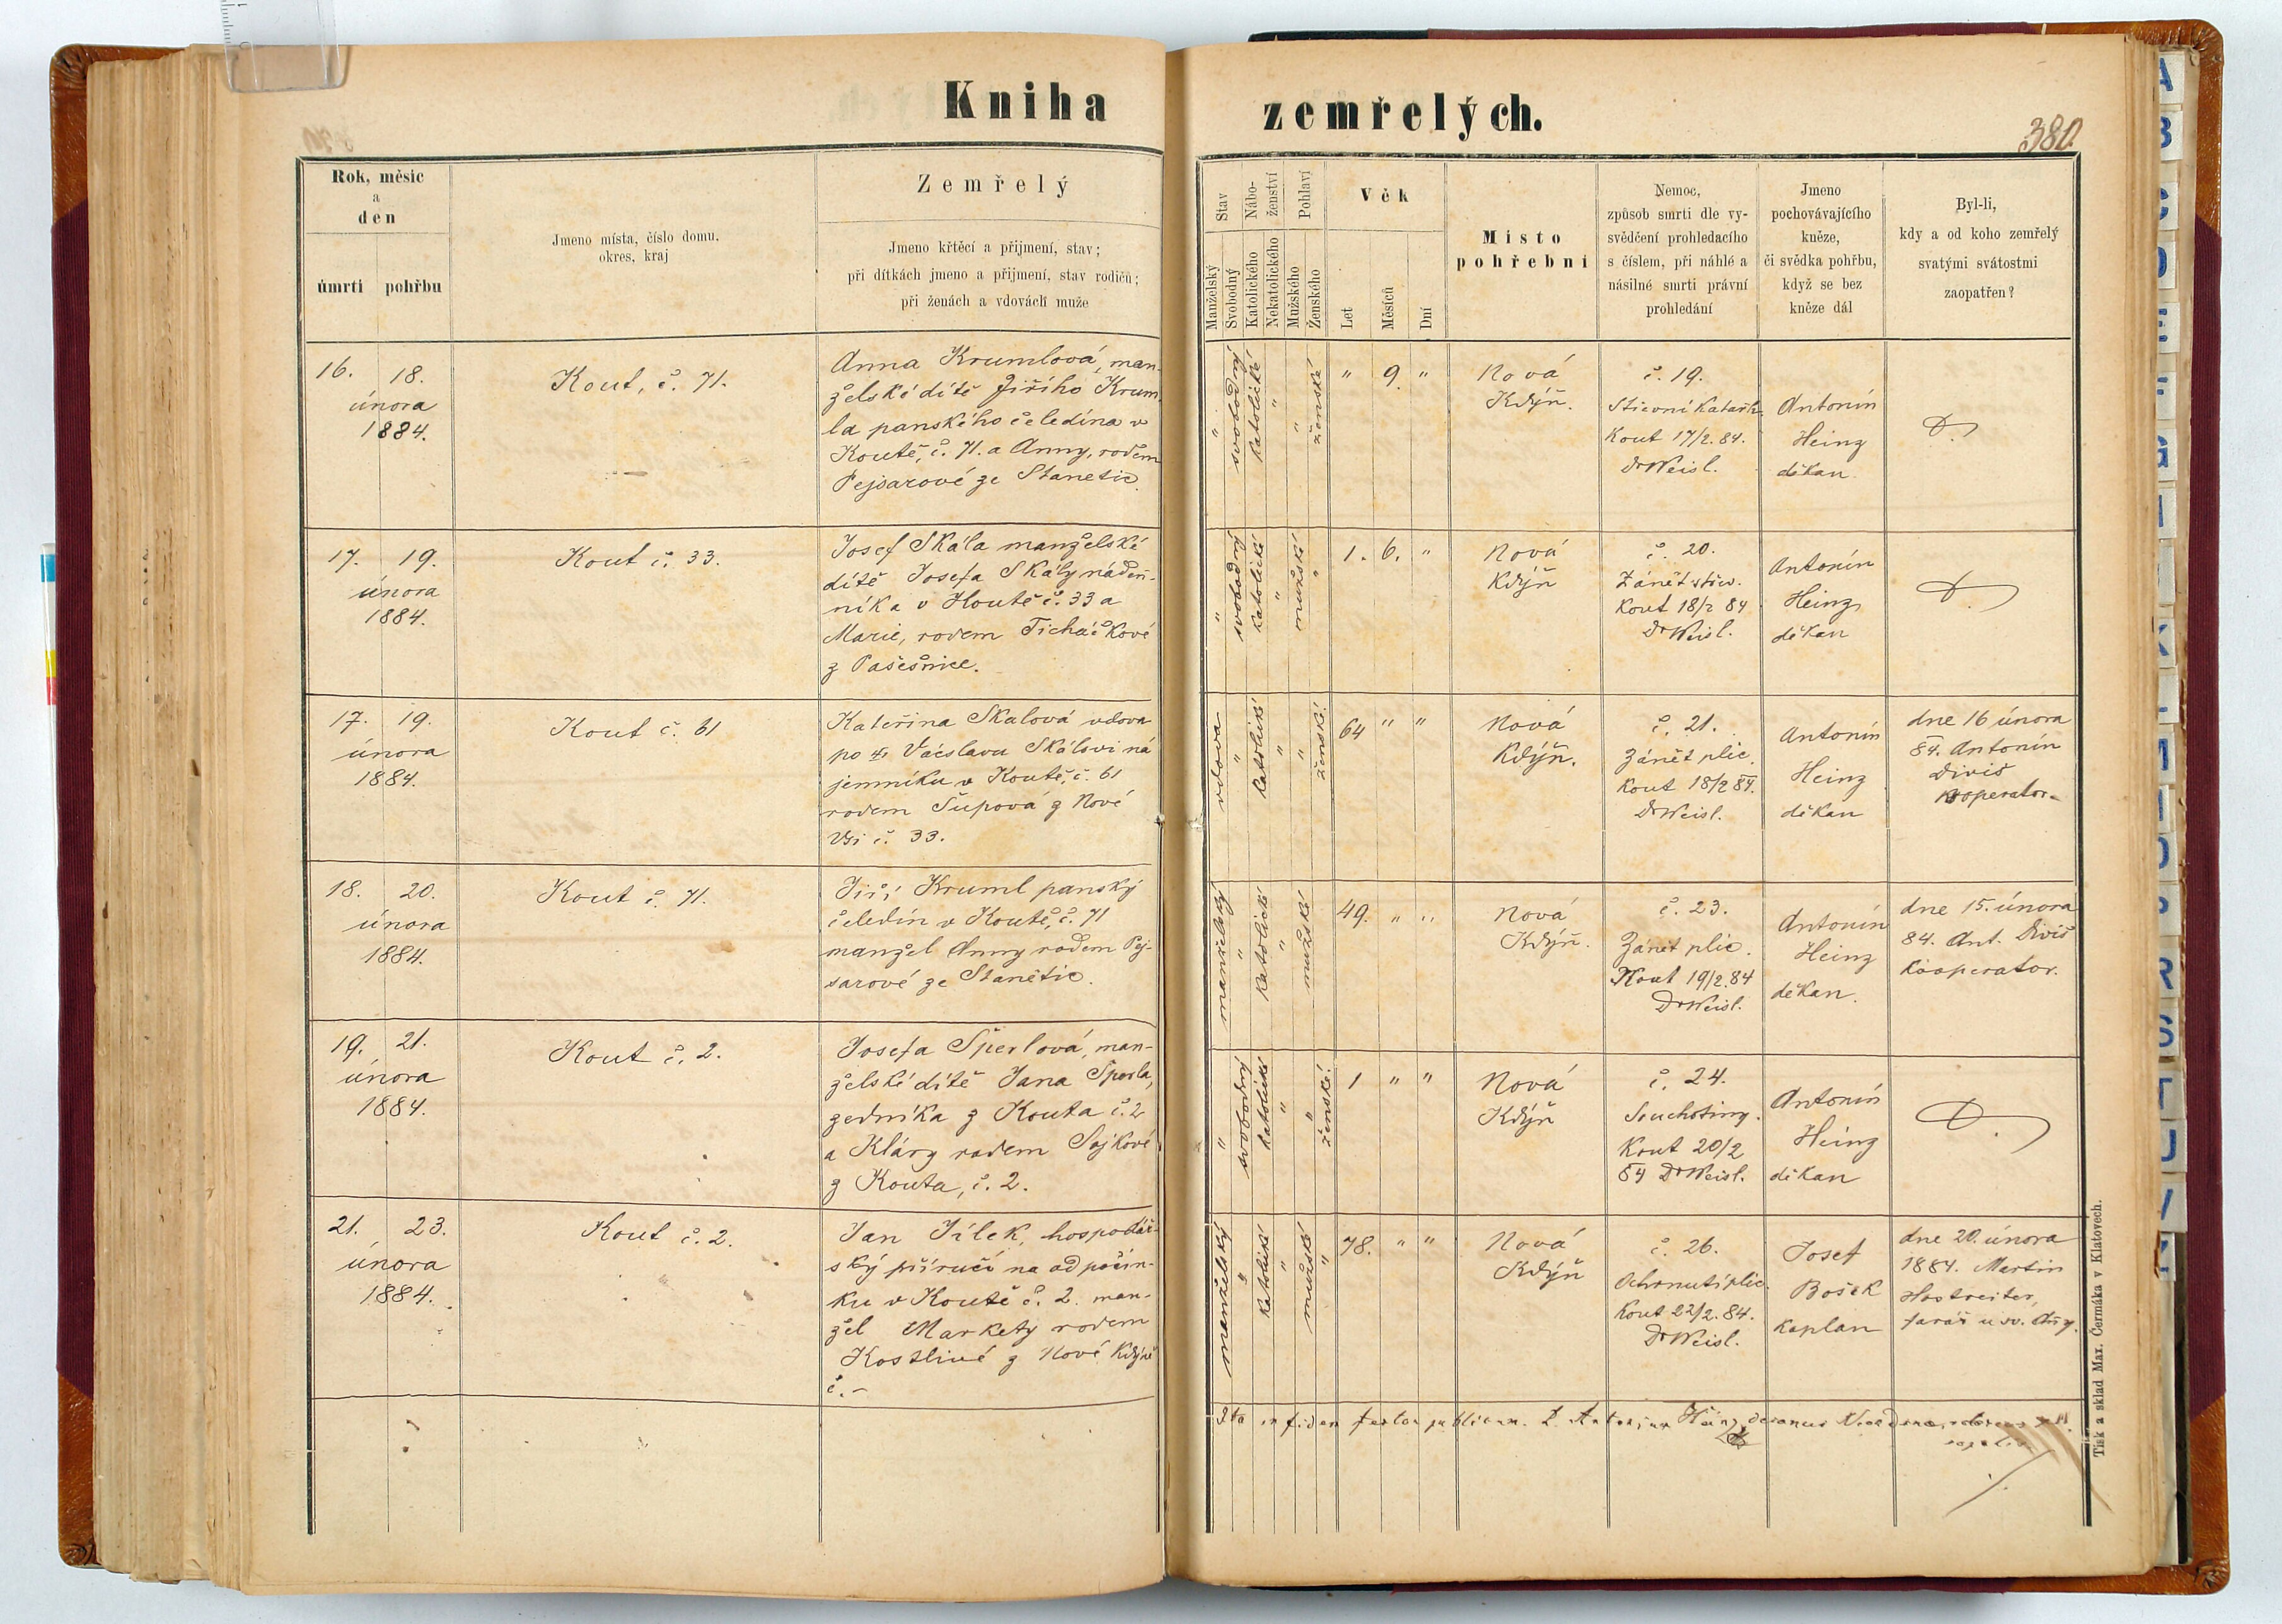 Kniha zemřelých.
380.
Rok, měsíc
a
den
úmrtí
pohřbu
Jmeno místa, číslo domu,
okres, kraj
Zemřelý
Jmeno křtěcí a přijmení, stav;
při dítkách jmeno a přijmení, stav rodičů;
při ženách a vdovách muže
Stav
Manželský
Svobodný
Nábo-
ženství
Katolického
Nekatolického
Pohlaví
Mužského
Ženského
Věk
Let
Měsíců
Dní
Místo
pohřební
Nemoc,
způsob smrti dle vy-
svědčení prohledacího
s číslem, při náhlé a
násilné smrti právní
prohledání
Jmeno
pochovávajícího
kněze,
či svědka pohřbu,
když se bez
kněze dál
Byl-li,
kdy a od koho zemřelý
svatými svátostmi
zaopatřen?
16. 18.
února
1884.
Kout, č. 71.
Anna Krumlová, man-
želské dítě Jiřího Krum-
la panského čeledína v
Koutě, č. 71. a Anny, rodem
Pejsarové ze Stanetic.
" svobodný
katolické "
" ženské
" 9 "
Nová
Kdýň.
č. 19.
Střevní Katarh
Kout 17/2. 84.
Dr Weisl.
Antonín
Heinz
děkan.
17. 19.
února
1884.
Kout č. 33.
Josef Skála manželské
dítě Josefa Skály náden-
níka v Koutě č. 33 a
Marie, rodem Ticháčkové
z Pašešnice.
" svobodný
katolické "
mužské "
1. 6. "
Nová
Kdýň
č. 20.
Zánět střev.
Kout 18/2 84
Dr Weisl.
Antonín
Heinz
děkan
17. 19.
února
1884.
Kout č. 61
Kateřina Skalová vdova
po Vácslavu Skálovi ná
jemníku v Koutě, č. 61
rodem Šupová z Nové
Vsi č. 33.
vdova "
katolické "
" ženské
64 " "
Nová
Kdýň.
č. 21.
Zánět plic.
Kout 18/2 84.
Dr Weisl.
Antonín
Heinz
děkan
dne 16 února
84. Antonín
Diviš
kooperator
18. 20.
února
1884.
Kout č. 71.
Jiří Kruml panský
čeledín v Koutě, č. 71
manžel Anny rodem Pej-
sarové ze Stanětic.
manželský "
katolické "
mužské
49. " "
Nová
Kdýň.
č. 23.
Zánět plic.
Kout 19/2. 84
Dr Weisl.
Antonín
Heinz
děkan.
dne 15. února
84. Ant. Diviš
kooperator.
19. 21.
února
1884.
Kout č. 2.
Josefa Šperlová, man-
želské dítě Jana Šperla,
zedníka z Kouta č. 2
a Kláry rodem Sejkové
z Kouta, č. 2.
" svobodný
katolické "
" ženské
1 " "
Nová
Kdýň
č. 24.
Souchotiny.
Kout 20/2
84 Dr Weisl.
Antonín
Heinz
děkan
21. 23.
února
1884.
Kout č. 2.
Jan Jílek, hospodář-
ský příručí na odpočin-
ku v Koutě č. 2. man-
žel Markety rodem
Kostlivé z Nové Kdýně
č. -
manželský "
katolické "
mužské "
78. " "
Nová
Kdýň
č. 26.
Ochrnutí plic.
Kout 22/2. 84.
Dr Weisl.
Josef
Bošek
kaplan
dne 20. února
1884. Martin
Hostreiter,
farář u sv. Anny.
Ita in fidem publicam. Antonius Heinz, decanus
Tisk a sklad Max. Čermáka v Klatovech.
A
B
C
D
E
F
G
R
S
T
U
V
Z